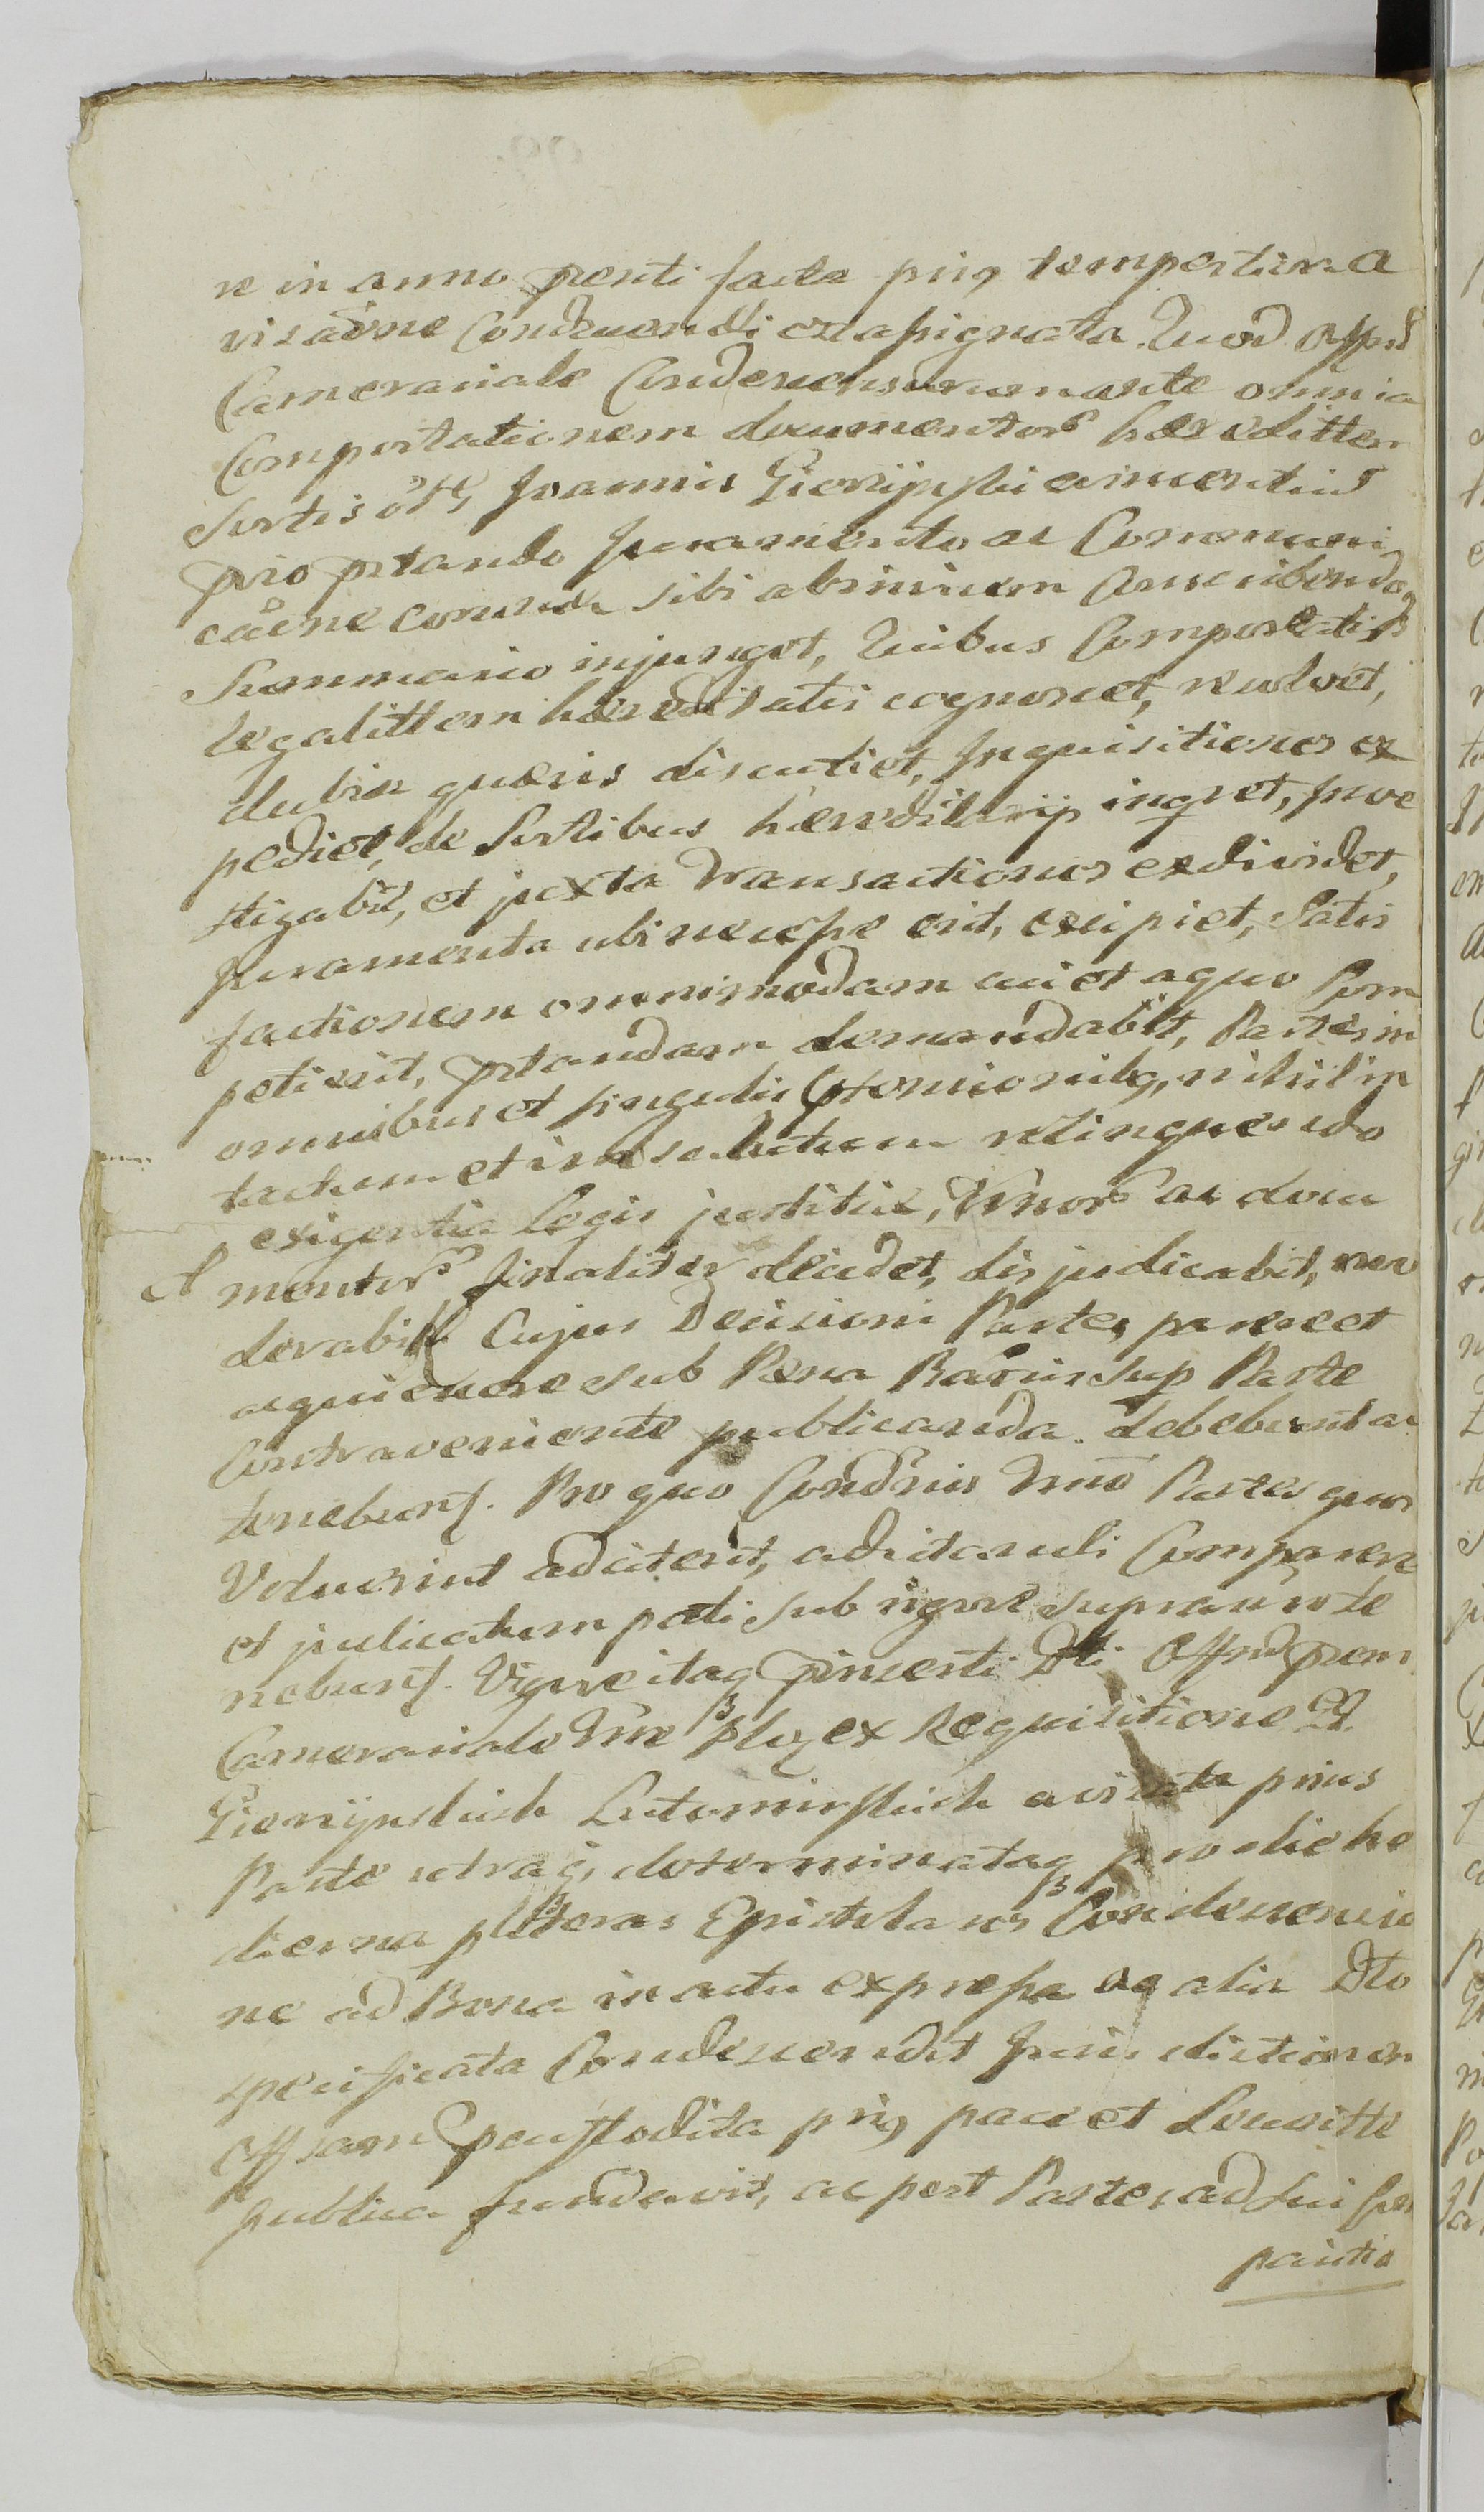 ne in anno pnti facta prig tempestiva a
visaõne Condescendi ex assignata. Quod Offm
Cameranale Condescensurum ante omnia
Comportationem documentorũ hæreditten
Sortis olt, Joannis Gierzÿnski
pro pstando Juramento ac Communi
caõne sibi abinvicem Conscribendo
Summario injunget, Quibus Comportatis
legalittem hæreditatis cognoscet, revolvet,
dubia quævis discutiet, Inquisitiones ex
pediet, de Sortibus hæredittrijs inqret, inve
stigabit, et juxta transactiones exdividet,
Juramenta ubi necesse erit, excipiet, Satis
factionem omnimodam cui et a quo Com
petierit, pstandam demandabit, Partes in
omnibus et singulis Ctgoniorũbg, nihil in
tactum et insolutum relinquendo
exigentia legis justitiæ, Jnõrũ ac docu
A mentorũ finaliter decidet, disjudicabit, mo
derabit Cujus Decisioni Partes parere et
acquiescere sub Pæna Bannis sup Parte
Contraveniente publicanda. debebunt ac
tenebunt. Pro quo Condnis Trnõ Partes quos
Voluerint adciterit, adcitandi Comparere
et judicatum pati sub rigore supranõ te
nebunt. Vigore itaq pinserti Dti Offm pem
Cameranale Trne plg ex Requisitione GG.
Gierzÿnskich Lutomirskich avisata prius
Parte utraq, determinataq pro die ho
dierna p litteras Epistolares Condescensio
ne ad Bona in actu expressa ac alia Dto
specificata Condescendit Jurisdictionem
Offsam pcustodita prig pace et Securitte
publica fundavit, ac post Partes ad sui
paritio